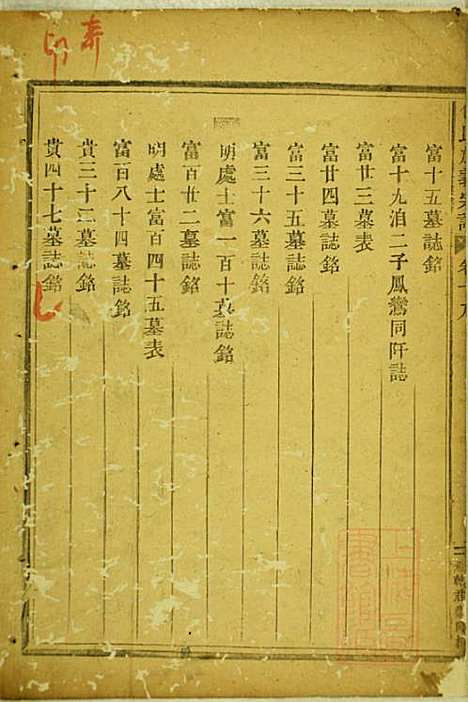 富十五墓誌銘
富十九洎二子鳳鸞同阡誌
富廿三墓表
富廿四墓誌銘
富三十五墓誌銘
富三十六墓誌銘
明處士富一百十墓誌銘
富百廿二墓誌銘
明處士富百四十五墓表
富百八十四墓誌銘
貴三十二墓誌銘
貴四十七墓誌銘